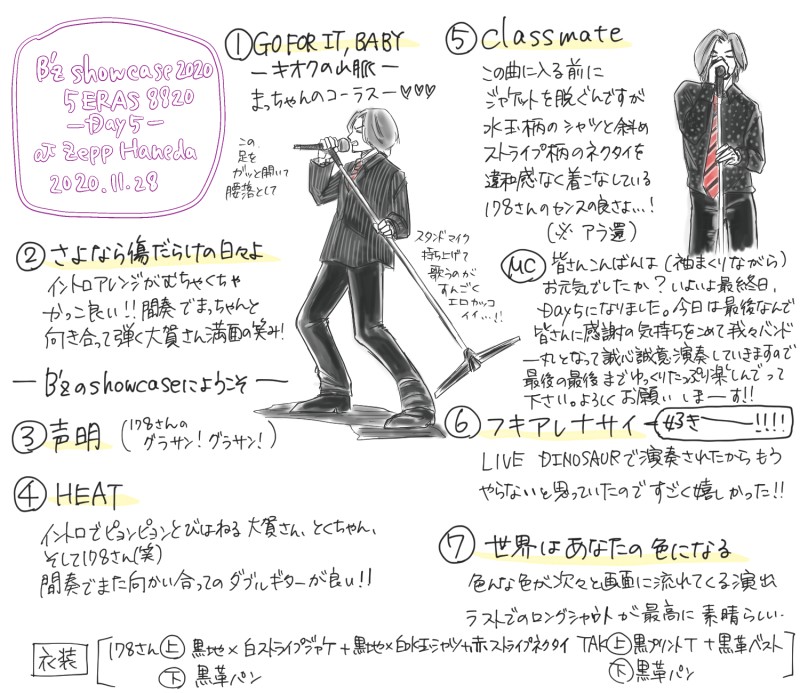 B'z showcase 2020
5 ERAS 8820
ーDay5ー
at Zepp Haneda
2020.11.28
① GO FOR IT, BABY
ーキオクの山脈ー
まっちゃんのコーラスー♡♡♡
この
足を
ガッと開いて
腰落として
スタンドマイク
持ち上げて
歌うのが
すんごく
エロカッコ
イイ…!!
② さよなら傷だらけの日々よ
イントロアレンジがむちゃくちゃ
かっこ良い!!間奏でまっちゃんと
向き合って弾く大賀さん満面の笑み!
ーB'zのshowcaseにようこそー
③ 声明 (178さんの
グラサン!グラサン!)
④ HEAT
イントロでピョンピョンとびはねる大賀さん、とくちゃん、
そして178さん(笑)
間奏でまた向かい合ってのダブルギターが良い!!
⑤ classmate
この曲に入る前に
ジャケットを脱ぐんですが
水玉柄のシャツと斜め
ストライプ柄のネクタイを
違和感なく着こなしている
178さんのセンスの良さよ…!
(※アラ還)
MC 皆さんこんばんは(袖まくりながら)
お元気でしたか?いよいよ最終日、
Day5になりました。今日は最後なんで
皆さんに感謝の気持ちをこめて我々バンド
一丸となって誠心誠意演奏していきますので
最後の最後までゆっくりたっぷり楽しんでって
下さい。よろしくお願いしまーす!!
⑥ フキアレナサイー好きー!!!!
LIVE DINOSAURで演奏されたからもう
やらないと思っていたのですごく嬉しかった!!
⑦ 世界はあなたの色になる
色んな色が次々と画面に流れてくる演出
ラストでのロングシャウトが最高に素晴らしい。
衣装 178さん 上 黒地×白ストライプジャケ+黒地×白水玉シャツ+赤ストライプネクタイ TAK 上 黒プリントT+黒革ベスト
下 黒革パン 下 黒革パン